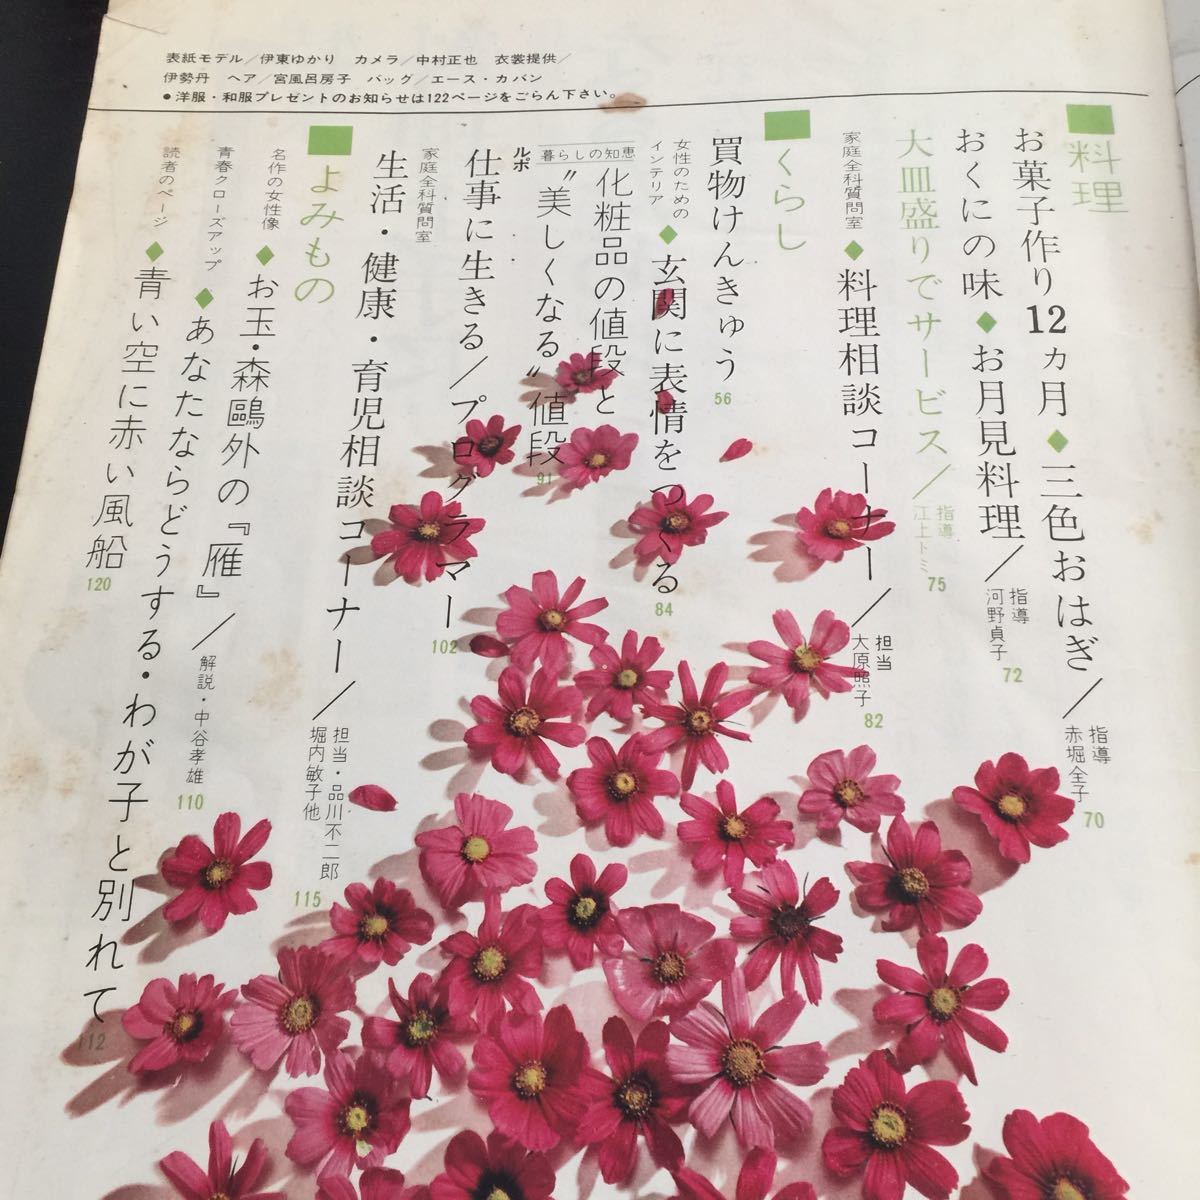 表紙モデル／伊東ゆかり　カメラ／中村正也　衣裳提供／
伊勢丹　ヘア／宮風呂房子　バッグ／エース・カバン
●洋服・和服プレゼントのお知らせは122ページをごらん下さい。
■料理
お菓子作り12ヵ月◆三色おはぎ／指導 赤堀全子 70
おくにの味◆お月見料理／指導 河野貞子 72
大皿盛りでサービス／指導 江上トミ 75
家庭全科質問室◆料理相談コーナー／担当 大原照子 82
■くらし
買物けんきゅう 56
女性のための
インテリア◆玄関に表情をつくる 84
暮らしの知恵
化粧品の値段と
〝美しくなる〟値段 91
ルポ
仕事に生きる／プログラマー 102
家庭全科質問室
生活・健康・育児相談コーナー／担当・品川不二郎
堀内敏子他 115
■よみもの
名作の女性像◆お玉・森鷗外の『雁』／解説・中谷孝雄 110
青春クローズアップ◆あなたならどうする・わが子と別れて 112
読者のページ◆青い空に赤い風船 120